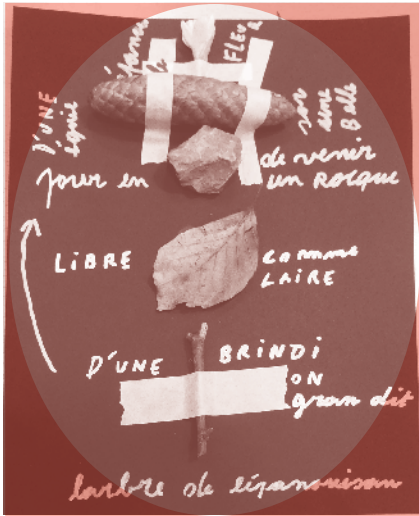 FLEUR
D'UNE
son
dine
Belle
jour en de venir
un ROCQUE
LIBRE comme
LAIRE
D'UNE BRINDI
ON
gran dit
larbre de lépanouisan